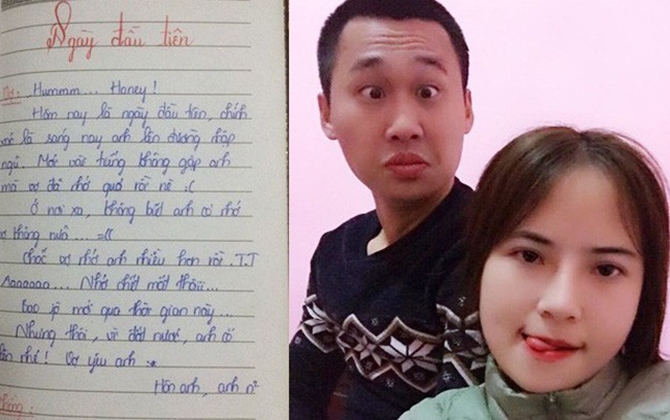 Ngày đầu tiên
Vợ: Hummm... Honey!
Hôm nay là ngày đầu tiên, chính
xác là sáng nay anh lên đường nhập
ngũ. Mới vài tiếng không gặp anh
mà vợ đã nhớ quá rồi nè :(
Ở nơi xa, không biết anh có nhớ
vợ không nữa ... =((
Chắc vợ nhớ anh nhiều hơn rồi .T.T
Aaaaaaa... Nhớ chết mất thôi...
Bao jờ mới qua thời gian này...
Nhưng thôi, vì đất nước, anh cố
lên nhé! Vợ yêu anh :*
Hôn anh, anh n²